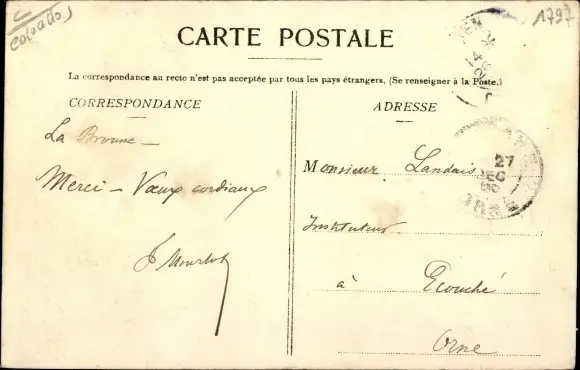 (Calvados)
1797
CARTE POSTALE
La correspondance au recto n'est pas acceptée par tous les pays étrangers. (Se renseigner à la Poste.)
CORRESPONDANCE
La
Merci - Vœux cordiaux
ADRESSE
Monsieur Landais
Instituteur
à Ecouché
Orne
27
DEC